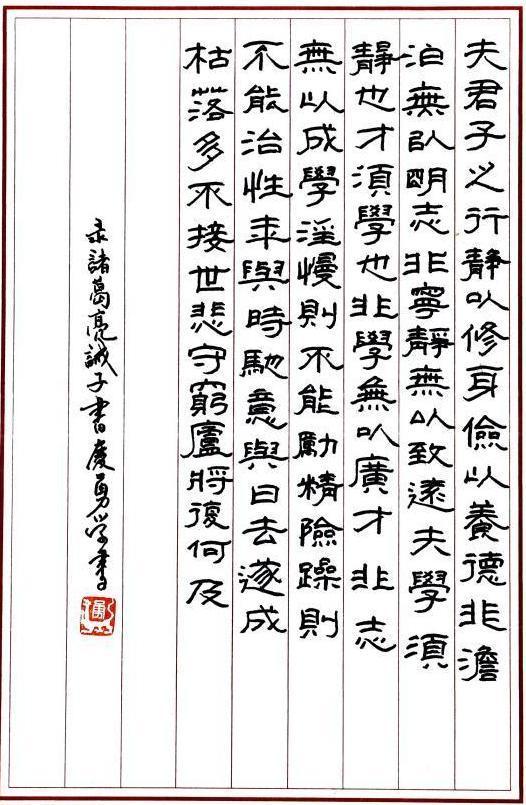 夫君子之行靜以修身儉以養德非澹
泊無以明志非寧靜無以致遠夫學須
靜也才須學也非學無以廣才非志
無以成學淫慢則不能勵精險躁則
不能治性年與時馳意與日去遂成
枯落多不接世悲守窮廬將復何及
录諸葛亮誡子書慶勇学書